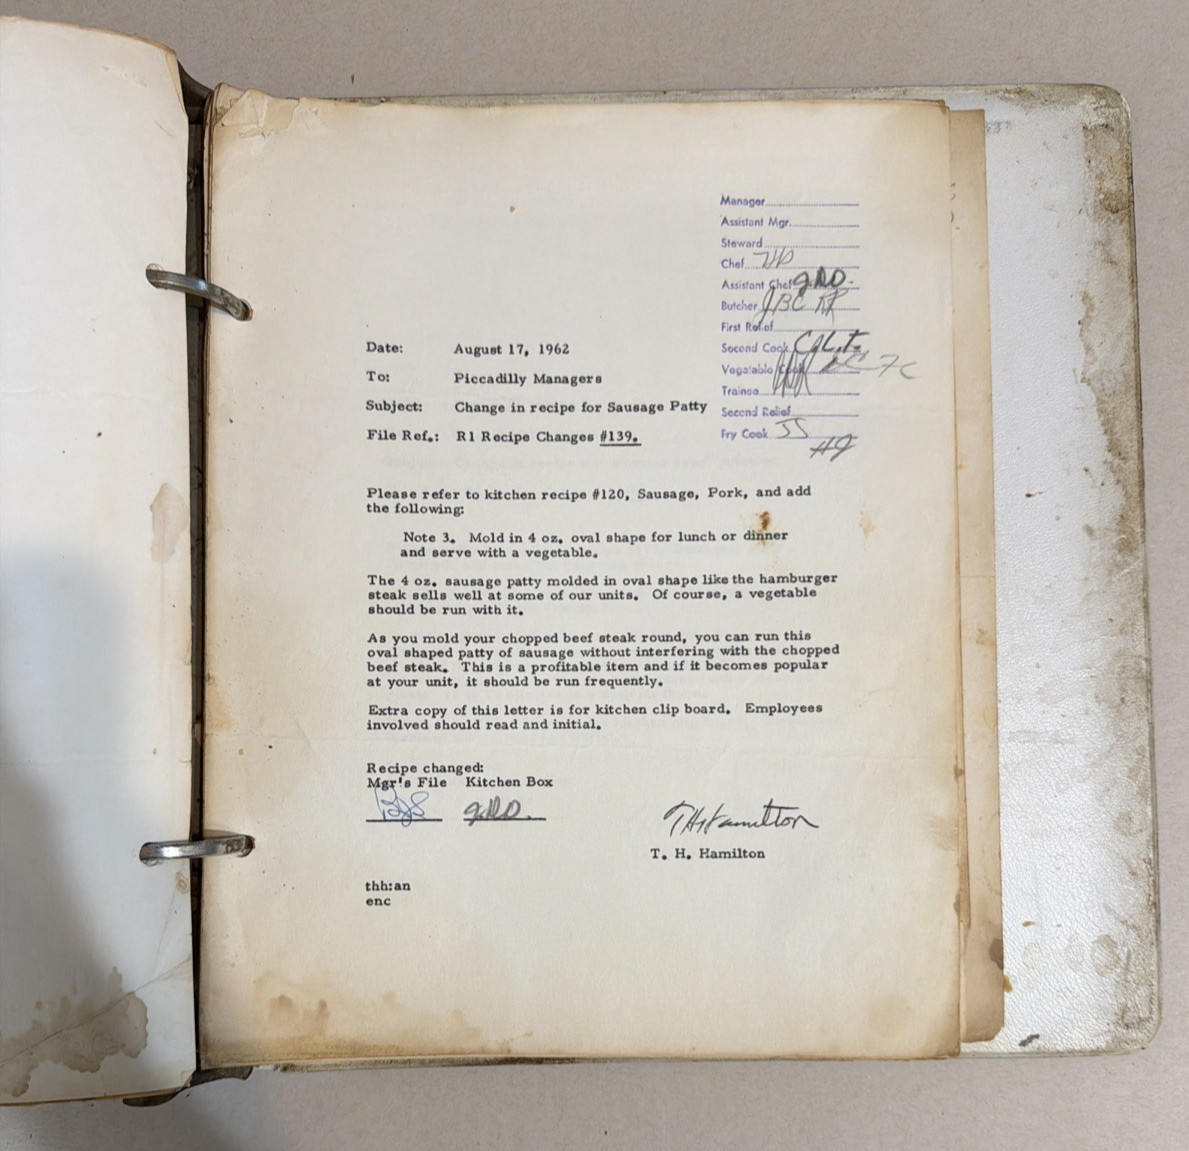 Manager
Assistant Mgr.
Steward
Chef
Assistant Chef
Butcher JBC
First Relief
Second Cook
Vegetable Cook
Trainee
Second Relief
Fry Cook JS
Date: August 17, 1962
To: Piccadilly Managers
Subject: Change in recipe for Sausage Patty
File Ref.: R1 Recipe Changes #139.
Please refer to kitchen recipe #120, Sausage, Pork, and add
the following:
Note 3. Mold in 4 oz. oval shape for lunch or dinner
and serve with a vegetable.
The 4 oz. sausage patty molded in oval shape like the hamburger
steak sells well at some of our units. Of course, a vegetable
should be run with it.
As you mold your chopped beef steak round, you can run this
oval shaped patty of sausage without interfering with the chopped
beef steak. This is a profitable item and if it becomes popular
at your unit, it should be run frequently.
Extra copy of this letter is for kitchen clip board. Employees
involved should read and initial.
Recipe changed:
Mgr's File Kitchen Box
THHamilton
T. H. Hamilton
thh:an
enc